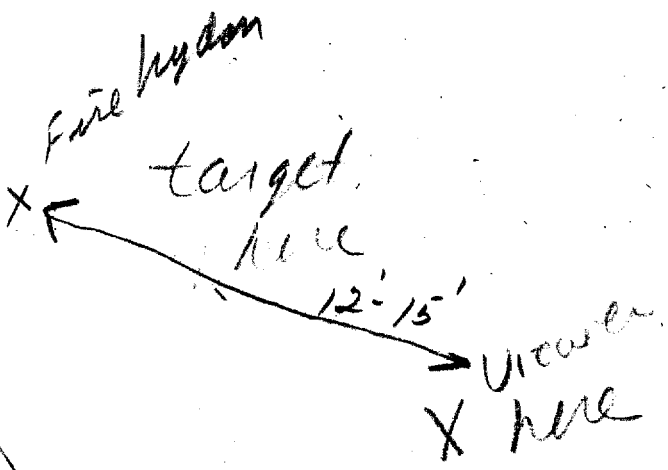 Fire hydran
target
here
X
12'-15'
Viewer
X here